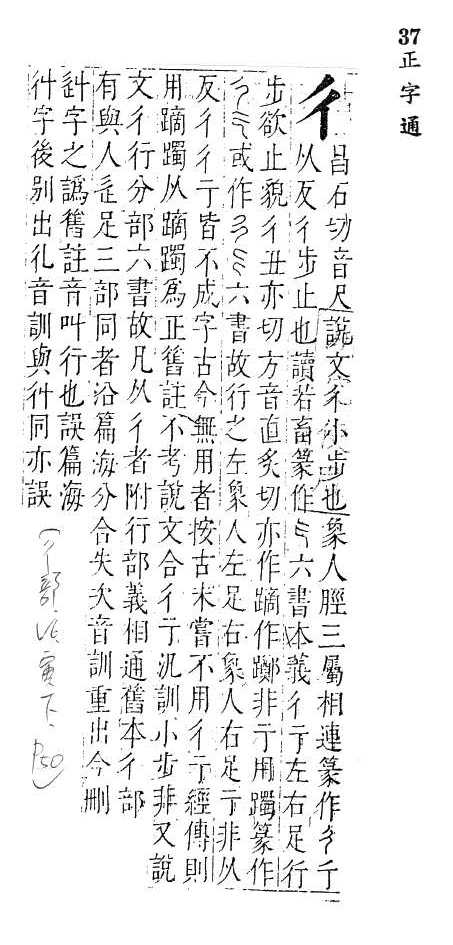 37 正字通
彳 昌石切音尺說文彳小步也象人脛三屬相連篆作彳亍
从反彳步止也讀若畜篆作六書本義彳亍左右足行
步欲止貌彳丑亦切方音直炙切亦作蹢作躑非亍用躅篆作
或作六書故行之左象人左足右象人右足亍非从
反彳彳亍皆不成字古今無用者按古未嘗不用彳亍經傳則
用蹢躅从蹢躅爲正舊註不考說文合彳亍汎訓小步非又說
文彳行分部六書故凡从彳者附行部義相通舊本彳部
有與人辵足三部同者沿篇海分合失次音訓重出今刪
字之譌舊註音叫行也誤篇海
字後別出音訓與同亦誤
(彳部, 寅下, P50)